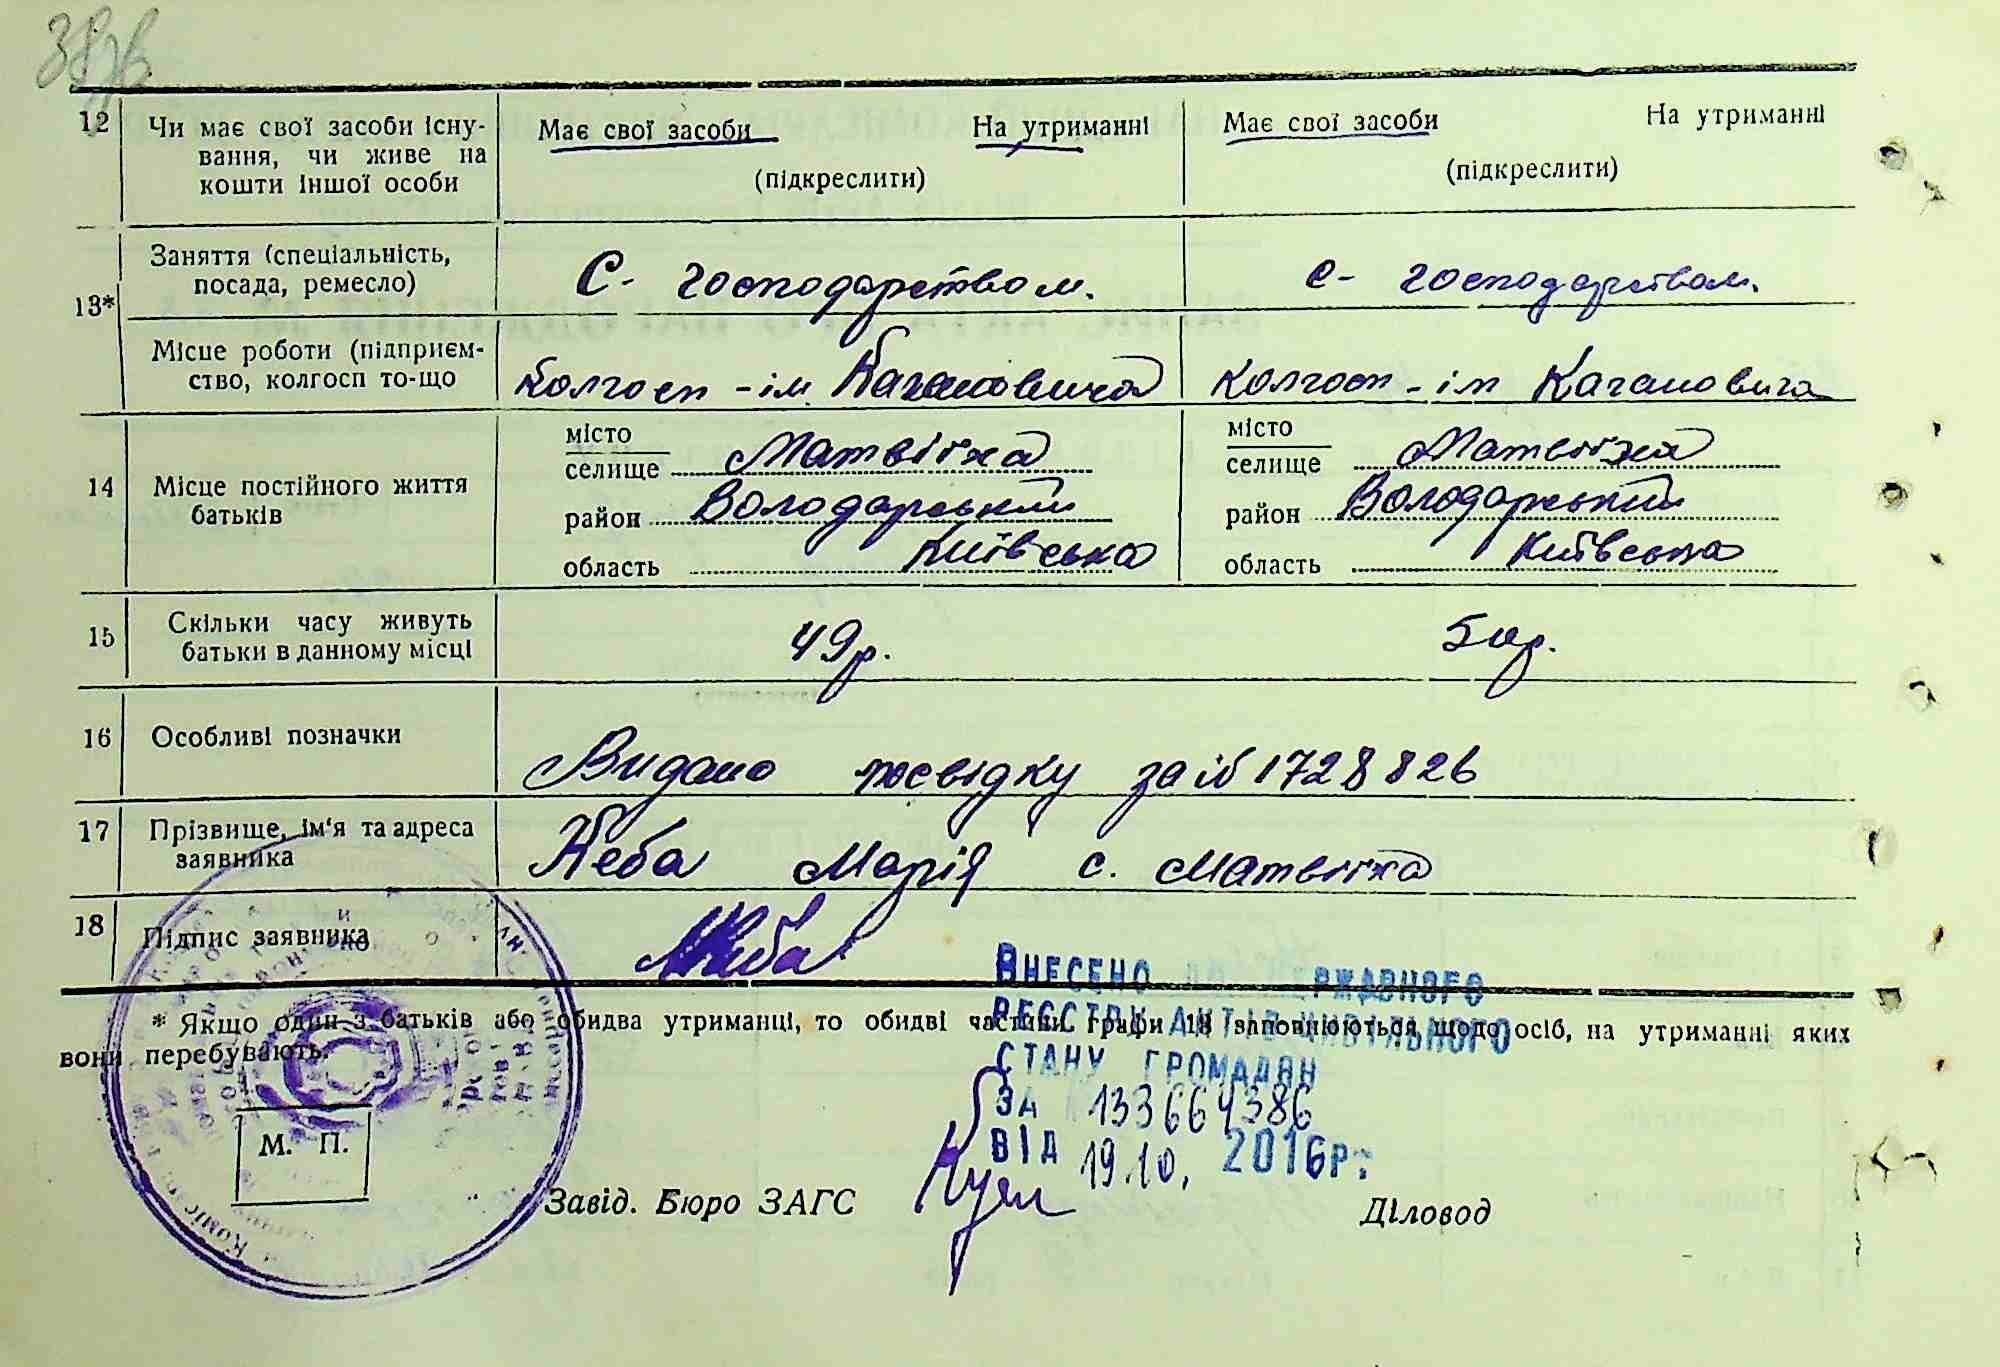 12 Чи має свої засоби існу-
вання, чи живе на
кошти іншої особи
Має свої засоби На утриманні
(підкреслити)
Має свої засоби На утриманні
(підкреслити)
13* Заняття (спеціальність,
посада, ремесло)
С- господарством.
с- господарством.
Місце роботи (підприєм-
ство, колгосп то-що
колгосп - ім Кагановича
колгосп - ім Кагановича
14 Місце постійного життя
батьків
місто
селище Матвіїха
район Володарський
область Київська
місто
селище Матвіїха
район Володарський
область Київська
15 Скільки часу живуть
батьки в данному місці
49р.
50р.
16 Особливі позначки
Видано посвідку за № 1728826
17 Прізвище, ім'я та адреса
заявника
Кеба Марія с. Матвіїха
18 Підпис заявника
МКеба
* Якщо один з батьків або обидва утриманці, то обидві частини графи 13 заповнюються щодо осіб, на утриманні яких
вони перебувають.
ВНЕСЕНО ДО ДЕРЖАВНОГО
РЕЄСТРУ АКТІВ ЦИВІЛЬНОГО
СТАНУ ГРОМАДЯН
ЗА 133664386
ВІД 19.10, 2016р.
М. П.
Завід. Бюро ЗАГС
Діловод